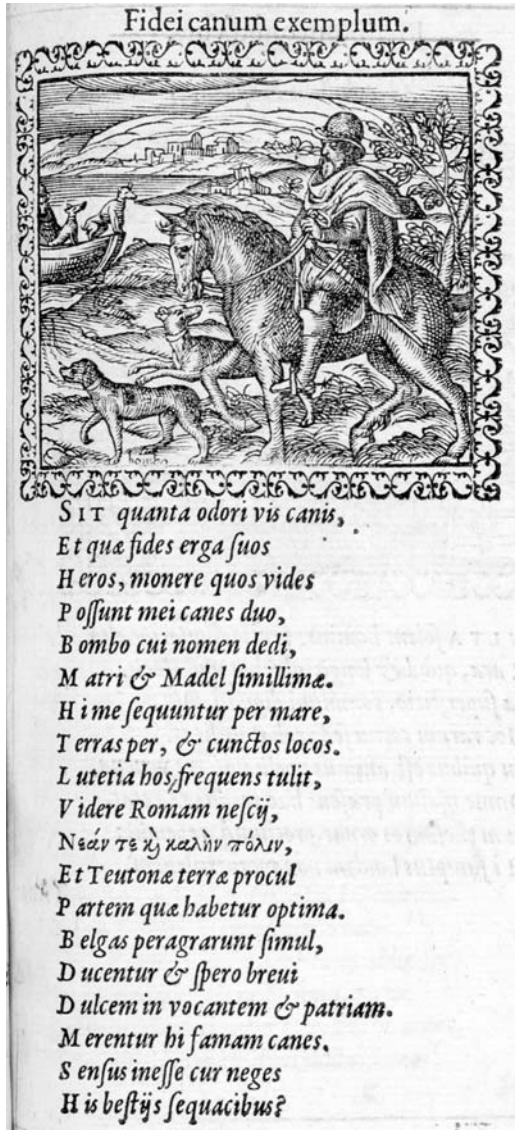 Fidei canum exemplum.
bombo
SIT quanta odori vis canis,
Et quæ fides erga ſuos
Heros, monere quos vides
Poſſunt mei canes duo,
Bombo cui nomen dedi,
Matri & Madel ſimillimæ.
Hi me ſequuntur per mare,
Terras per, & cunctos locos.
Lutetia hos, frequens tulit,
Videre Romam neſcij,
Νέαν τε κ̀ καλὴν πόλιν,
Et Teutonæ terræ procul
Partem quæ habetur optima.
Belgas peragrarunt ſimul,
Ducentur & ſpero brevi
Dulcem in vocantem & patriam.
Merentur hi famam canes.
Senſus ineſſe cur neges
His beſtijs ſequacibus?